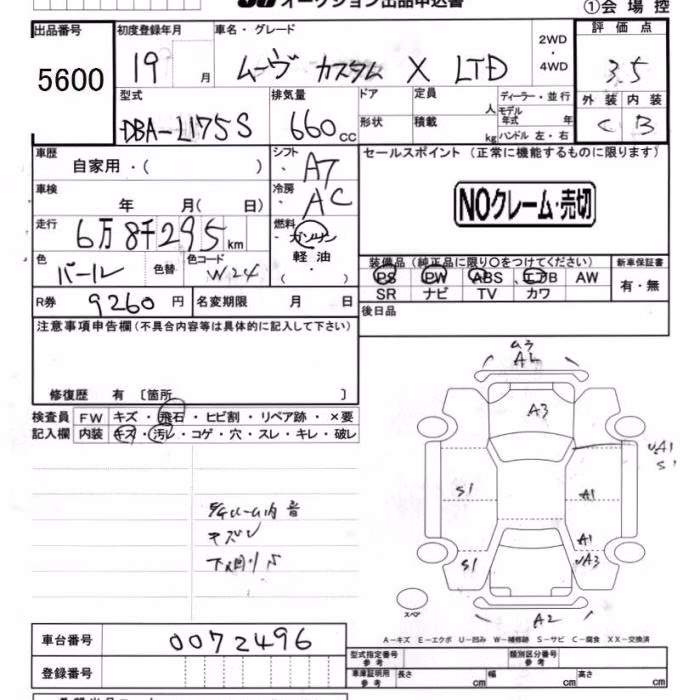 オークション出品申込書
①会場控
出品番号
5600
初度登録年月
19 月
車名・グレード
ムーヴ カスタム X LTD
2WD
・
4WD
評価点
3.5
型式
DBA-L175S
排気量
660 cc
ドア
定員 人
ディーラー・並行
モデル年式 年
形状
積載 kg
ハンドル 左・右
外装 内装
C B
車歴
自家用・( )
シフト
AT
セールスポイント (正常に機能するものに限ります)
NOクレーム・売切
車検
年 月( 日)
冷房
AC
走行
6万8千295 km
燃料
・ガソリン
軽油
・( )
色
パール
色替
色コード
W24
装備品 (純正品に限り○をつけてください)
PS PW ABS エアB AW
SR ナビ TV カワ
新車保証書
有・無
R券 9260 円
名変期限 月 日
後日品
注意事項申告欄 (不具合内容等は具体的に記入して下さい)
修復歴 有 〔箇所 〕
検査員
記入欄
FW キズ・飛石・ヒビ割・リペア跡・×要
内装 キズ・汚レ・コゲ・穴・スレ・キレ・破レ
A3
UA1
S1
S1
A1
A1
S1
UA3
キズ
下回りS
スペア
A2
A-キズ E-エクボ U-凹み W-補修跡 S-サビ C-腐食 XX-交換済
車台番号 0072496
型式指定番号
参考
類別区分番号
参考
登録番号
車庫証明用
参考
長さ cm
幅 cm
高さ cm